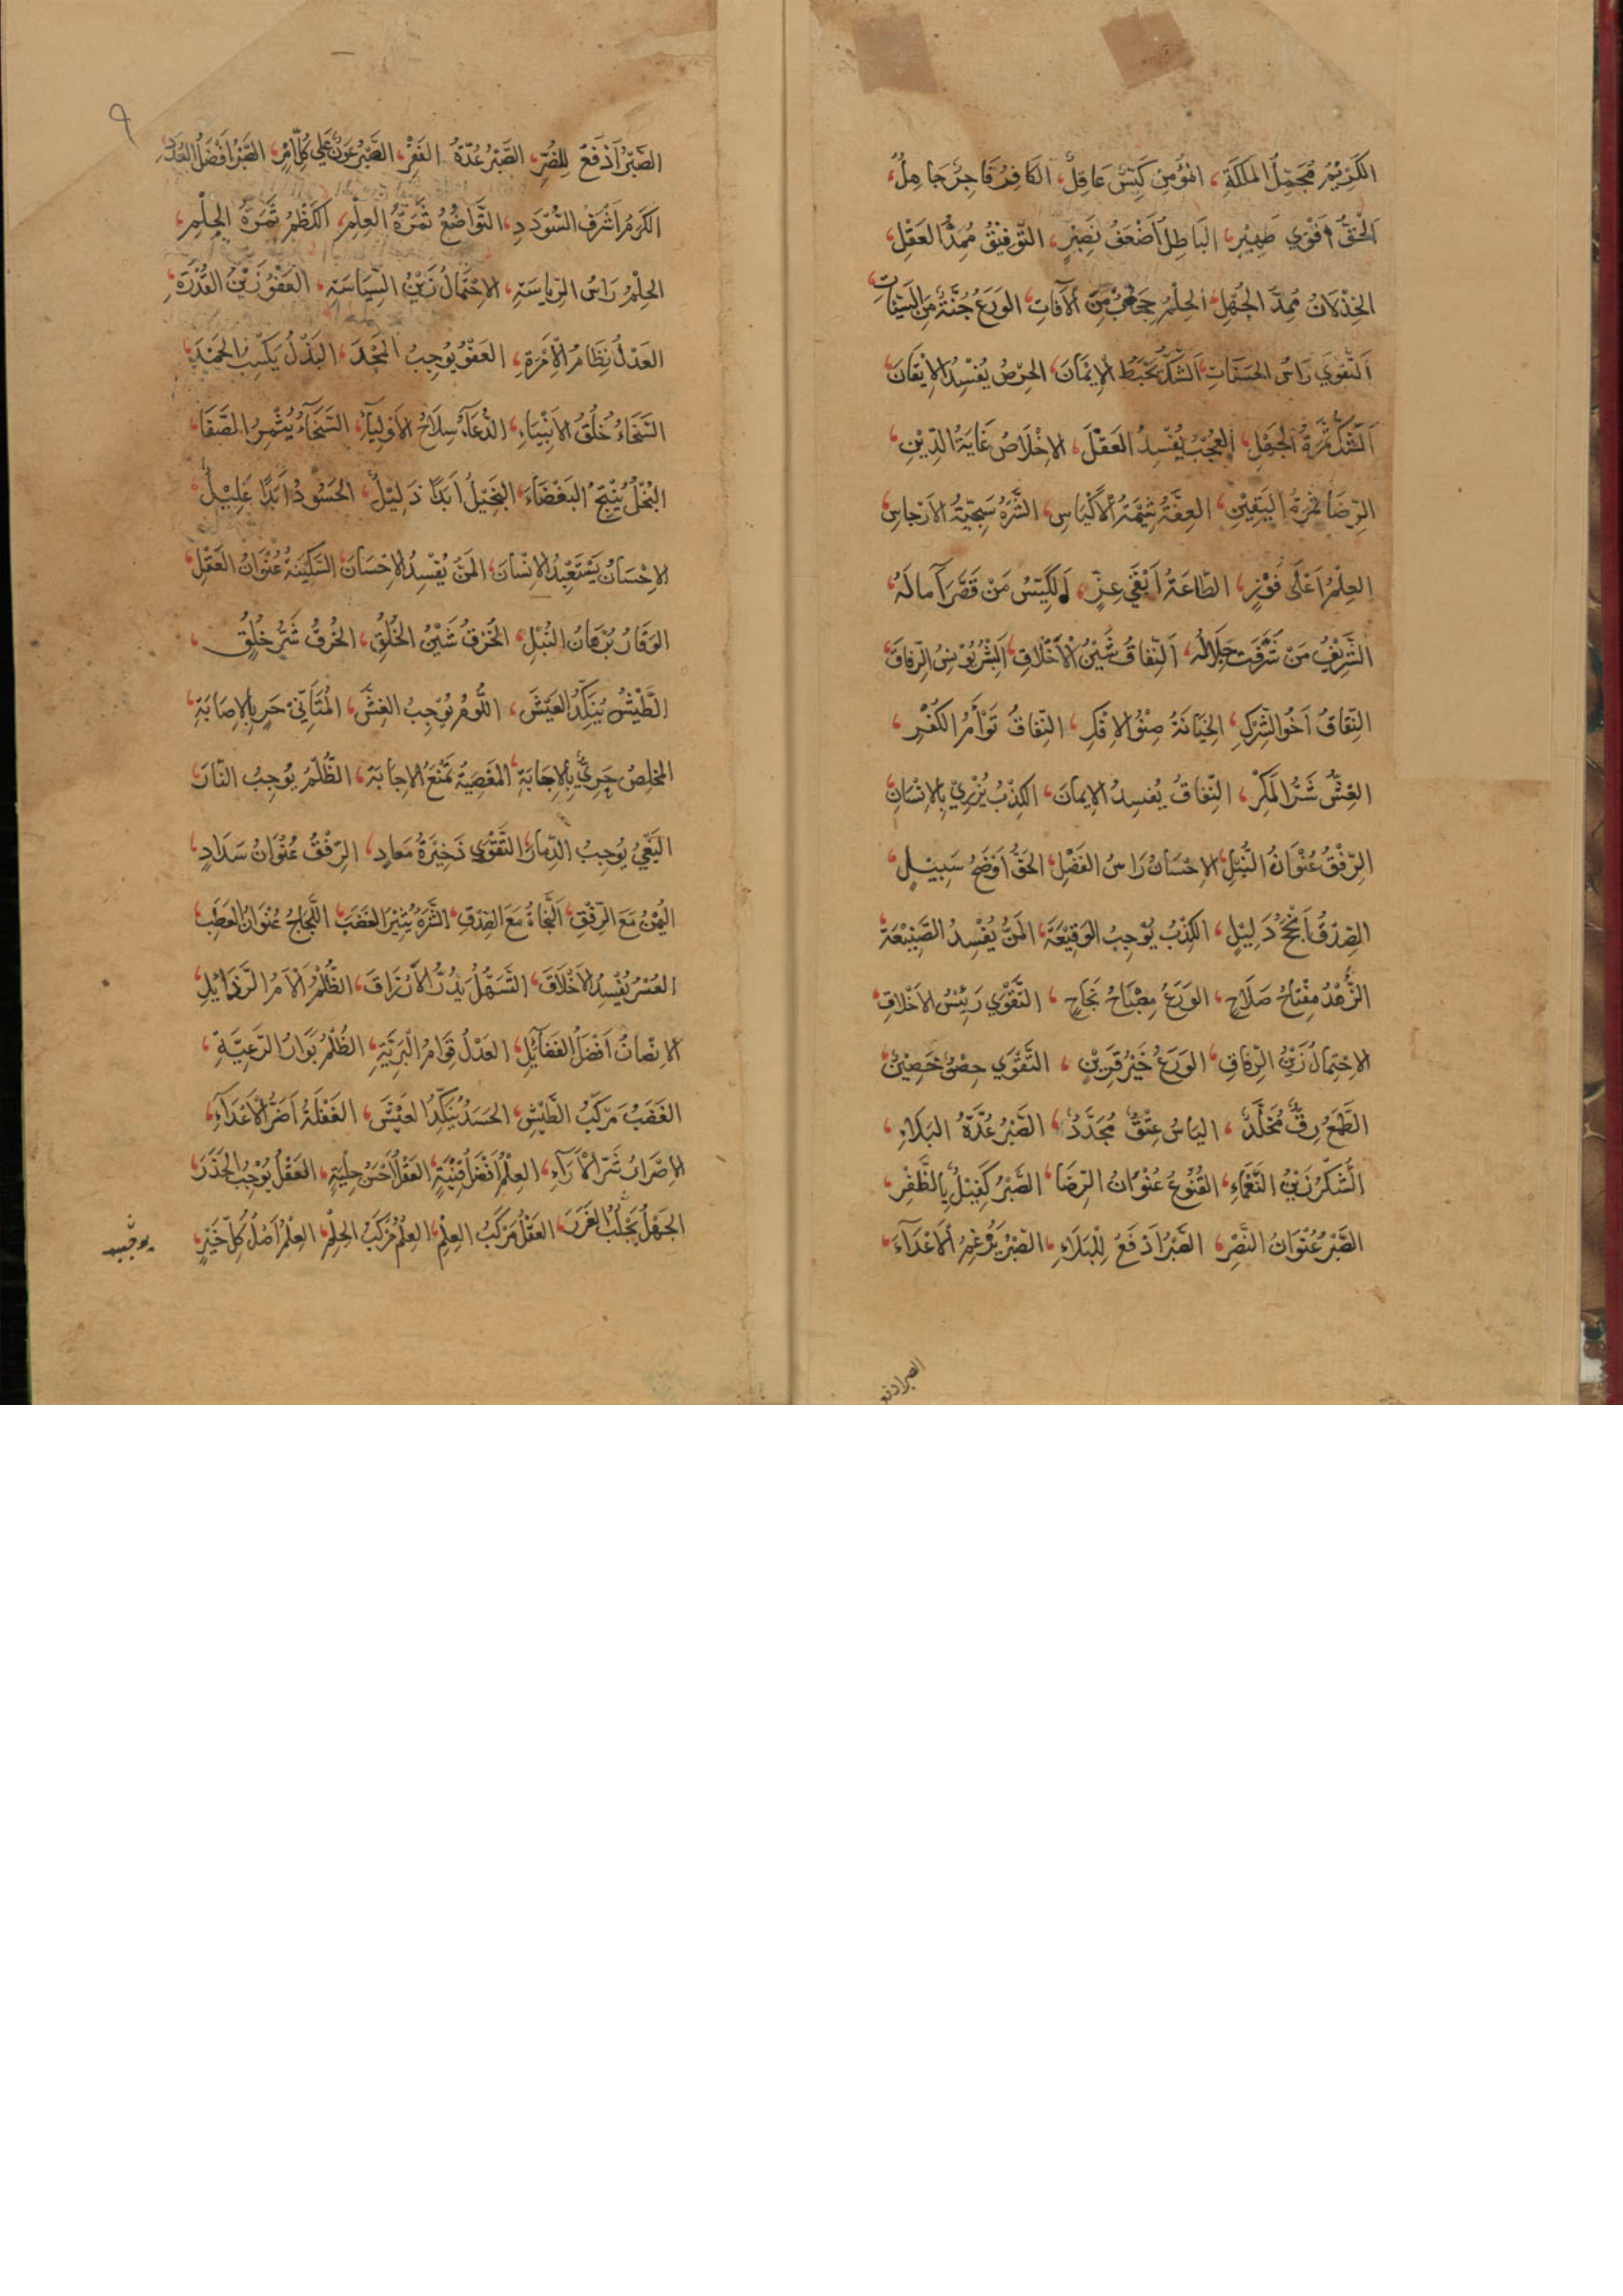 الكَرِيْمُ مُجْمِلُ المَلَكَةِ، المُؤمِنُ كَيِّسٌ عَاقِلٌ، الكَافِرُ فَاجِرٌ جَاهِلٌ،
اَلحَقُّ أَقْوَي ظَهِيْرٍ، البَاطِلُ اَضْعَفُ نَصِيْرٍ، التَّوفِيْقُ مُمِدُّ العَقْلِ،
الخِذْلَانُ مُمِدُّ الجَهْلِ، الحِلْمُ حِجَابٌ مِنَ الآفَاتِ، الوَرَعُ جُنَّةٌ مِنَ السَّيِّئَاتِ،
اَلتَّقْوَي رَاسُ الحَسَنَاتِ، اَلشَّكُّ يُحْبِطُ الاِيْمَانَ، الحِرْصُ يُفْسِدُ الاِيْقَانَ،
اَلشَّكُّ ثَمَرَةُ الجَهْلِ، العُجْبُ يُفْسِدُ العَقْلَ، الاِخْلَاصُ غَايَةُ الدِّيْنِ،
الرِّضَا ثَمَرَةُ اليَقِيْنِ، العِفَّةُ شِيْمَةُ الاَكْيَاسِ، الشَّرَهُ سَجِيَّةُ الاَرْجَاسِ،
العِلْمُ اَعْلَى فَوْزٍ، الطَّاعَةُ اَبْقَي عِزٍّ، اَلكَيِّسُ مَنْ قَصَّرَ آمالَهُ،
الشَّرِيْفُ مَنْ شَرُفَتْ خِلَالُهُ، اَلنِّفَاقُ شَيْنُ الاَخْلَاقِ، اَلبِشْرُ يُوْنِسُ الرِّفَاقَ،
النِّفَاقُ اَخُو الشِّرْكِ، الخِيَانَةُ صِنْوُ الاِفْكِ، النِّفَاقُ تَوْأَمُ الكُفْرِ،
الغِشُّ شَرُّ المَكْرِ، النِّفَاقُ يُفْسِدُ الاِيمَانَ، الكِذْبُ يُزْرِيْ بِالاِنْسَانِ،
الرِّفْقُ عُنْوَانُ النُّبْلِ، الاِحْسَانُ رَاسُ الفَضْلِ، الحَقُّ اَوْضَحُ سَبِيْلٍ،
الصِّدْقُ اَنْجَحُ دَلِيْلٍ، الكِذْبُ يُوْجِبُ الوَقِيْعَةَ، المَنُّ يُفْسِدُ الصَّنِيْعَةَ،
الزُّهْدُ مِفْتَاحُ صَلَاحٍ، الوَرَعُ مِصْبَاحُ نَجَاحٍ، التَّقْوَي رَئِيْسُ الاَخْلَاقِ،
الاِحْتِمَالُ زَيْنُ الرِّفَاقِ، الوَرَعُ خَيْرُ قَرِيْنٍ، التَّقْوَي حِصْنٌ حَصِيْنٌ،
الطَّمَعُ رِقٌّ مُخَلَّدٌ، اليَاسُ عِتْقٌ مُجَدَّدٌ، الصَّبْرُ عُدَّةُ البَلَاءِ،
الشُّكْرُ زَيْنُ النَّعْمَاءِ، القُنُوْعُ عُنْوَانُ الرِّضَا، الصَّبْرُ كَفِيْلٌ بِالظَّفْرِ،
الصَّبْرُ عُنْوَانُ النَّصْرِ، الصَّبْرُ اَدْفَعُ لِلْبَلَاءِ، الصَّبْرُ يُرْغِمُ الاَعْدَآءَ،
الصبر ادفع
٩
الصَّبْرُ اَدْفَعُ لِلضُّرِّ، الصَّبْرُ عُدَّةُ الفَقْرِ، الصَّبْرُ عَوْنٌ عَلَي كُلِّ اَمْرٍ، الصَّبْرُ اَفْضَلُ العُدَدِ،
الكَرَمُ اَشْرَفُ السُّؤْدَدِ، التَّوَاضُعُ ثَمَرَةُ العِلْمِ، الكَظْمُ ثَمَرَةُ الحِلْمِ،
الحِلْمُ رَاسُ الرِّيَاسَةِ، الاِحْتِمَالُ زَيْنُ السِّيَاسَةِ، العَفْوُ زَيْنُ القُدْرَةِ،
العَدْلُ نِظَامُ الاِمْرَةِ، العَفْوُ يُوْجِبُ المَجْدَ، البَذْلُ يَكْسِبُ الحَمْدَ،
السَّخَاءُ خُلُقُ الاَنْبِيَاءِ، الدُّعَآءُ سِلَاحُ الاَوْلِيَآءِ، السَّخَآءُ يُثْمِرُ الصَّفَا،
البُخْلُ يُنْتِجُ البَغْضَآءَ، البَخِيْلُ اَبَدًا ذَلِيْلٌ، الحَسُوْدُ اَبَدًا عَلِيْلٌ،
الاِحْسَانُ يَسْتَعْبِدُ الاِنْسَانَ، المَنُّ يُفْسِدُ الاِحْسَانَ، السَّكِيْنَةُ عُنْوَانُ العَقْلِ،
الوَقَارُ بُرْهَانُ النُّبْلِ، الخُرْقُ شَيْنُ الخُلُقِ، الخُرْقُ شَرُّ خُلُقٍ،
الطَّيْشُ يُنَكِّدُ العَيْشَ، اللُّوْمُ يُوْجِبُ الغِشَّ، المُتَأَنِّيْ حَرٍ بِالاِصَابَةِ،
المُخْلِصُ حَرِيٌّ بِالاِجَابَةِ، المَعْصِيَةُ تَمْنَعُ الاِجَابَةَ، الظُّلْمُ يُوْجِبُ النَّارَ،
البَغْيُ يُوْجِبُ الدَّمَارَ، التَّقْوَي ذَخِيْرَةُ مَعَادٍ، الرِّفْقُ عُنْوَانُ سَدَادٍ،
اليُمْنُ مَعَ الرِّفْقِ، اَلنَّجَاةُ مَعَ الصِّدْقِ، الشَّرَهُ يُثِيْرُ الغَضَبَ، اللَّجَاجُ عُنْوَانُ العَطَبِ،
العُسْرُ يُفْسِدُ الاَخْلَاقَ، التَّسَهُّلُ يُدِرُّ الاَرْزَاقَ، الظُّلْمُ اَلْاَمُ الرَّذَايِلِ،
الاِنْصَافُ اَفْضَلُ الفَضَآئِلِ، العَدْلُ قِوَامُ البَرِيَّةِ، الظُّلْمُ بَوَارُ الرَّعِيَّةِ،
الغَضَبُ مَرْكَبُ الطَّيْشِ، الحَسَدُ يُنَكِّدُ العَيْشَ، الغَفْلَةُ اَضَرُّ الاَعْدَآءِ،
الاِصْرَارُ شَرُّ الآرَآءِ، العِلْمُ اَفْضَلُ قِنْيَةٍ، العَقْلُ اَحْسَنُ حِلْيَةٍ، العَقْلُ يُوْجِبُ الحَذَرَ،
الجَهْلُ يَجْلِبُ الغَرَرَ، العَقْلُ مَرْكَبُ العِلْمِ، العِلْمُ مَرْكَبُ الحِلْمِ، العِلْمُ اَصْلُ كُلِّ خَيْرٍ،